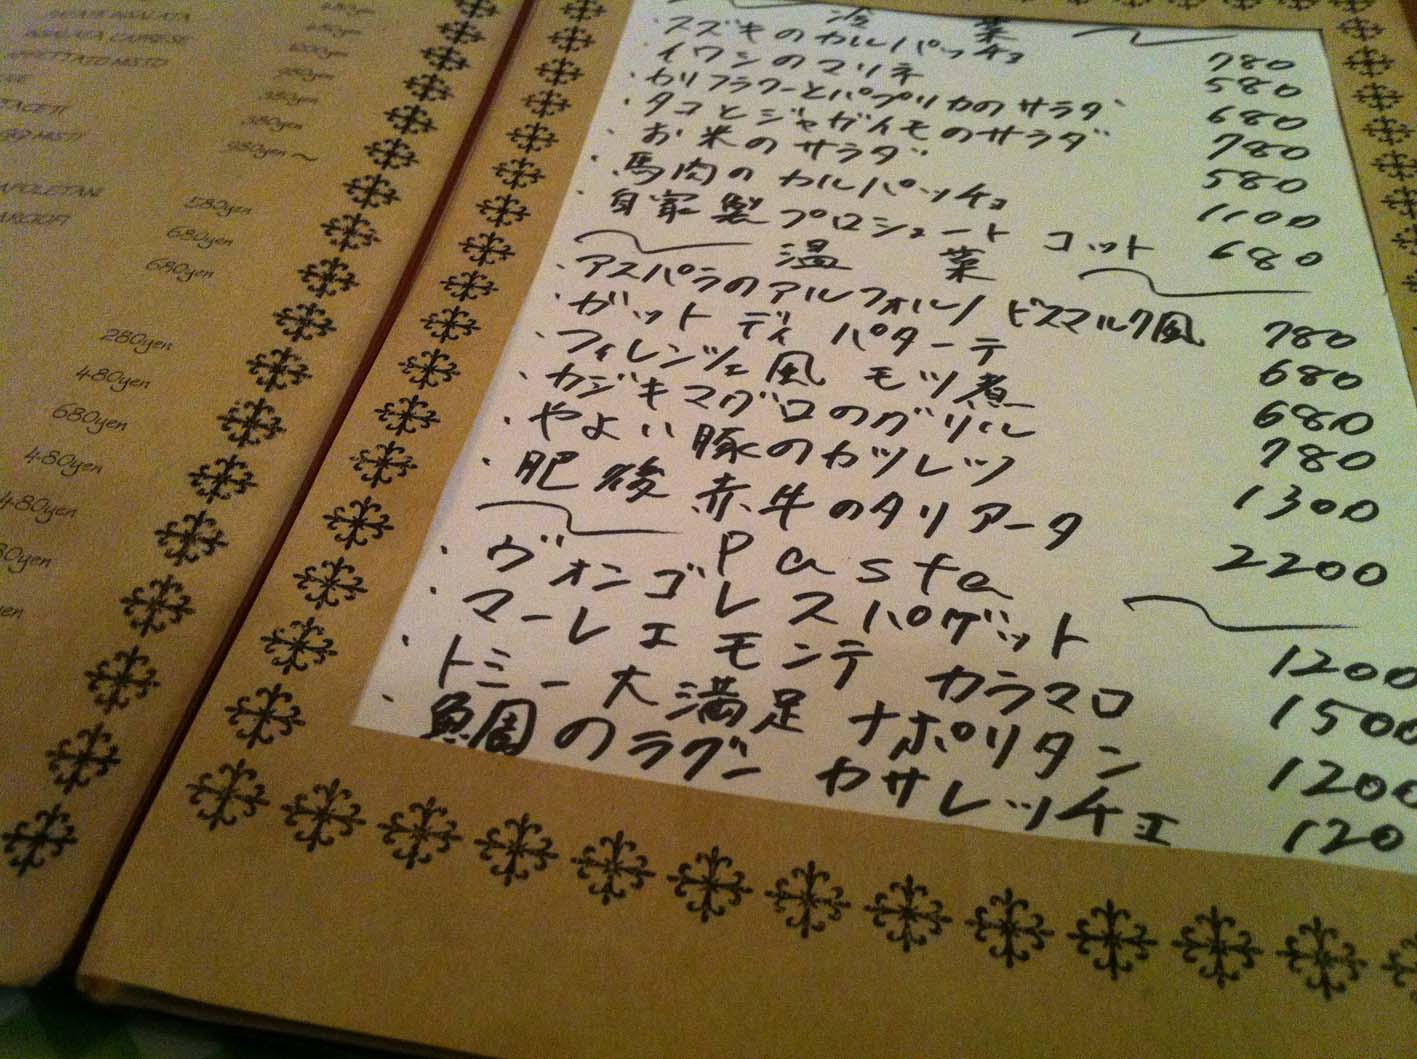 INSALATA
INSALATA CAPRESE
AFFETTATO MISTO
480yen
480yen
600yen
980yen
380yen
380yen
980yen〜
580yen
680yen
680yen
280yen
480yen
680yen
480yen
480yen
冷菜
・スズキのカルパッチョ 780
・イワシのマリネ 580
・カリフラワーとパプリカのサラダ 680
・タコとジャガイモのサラダ 780
・お米のサラダ 580
・馬肉のカルパッチョ 1100
・自家製プロシュート コット 680
温菜
・アスパラのアルフォルノ ビスマルク風 780
・ガット ディ パターテ 680
・フィレンツェ風 モツ煮 680
・カジキマグロのグリル 780
・やよい豚のカツレツ 1300
・肥後赤牛のタリアータ 2200
Pasta
・ヴォンゴレ スパゲット 1200
・マーレ エ モンテ カラマロ 1500
・トミー大満足 ナポリタン 1200
・のラグー カサレッチェ 120